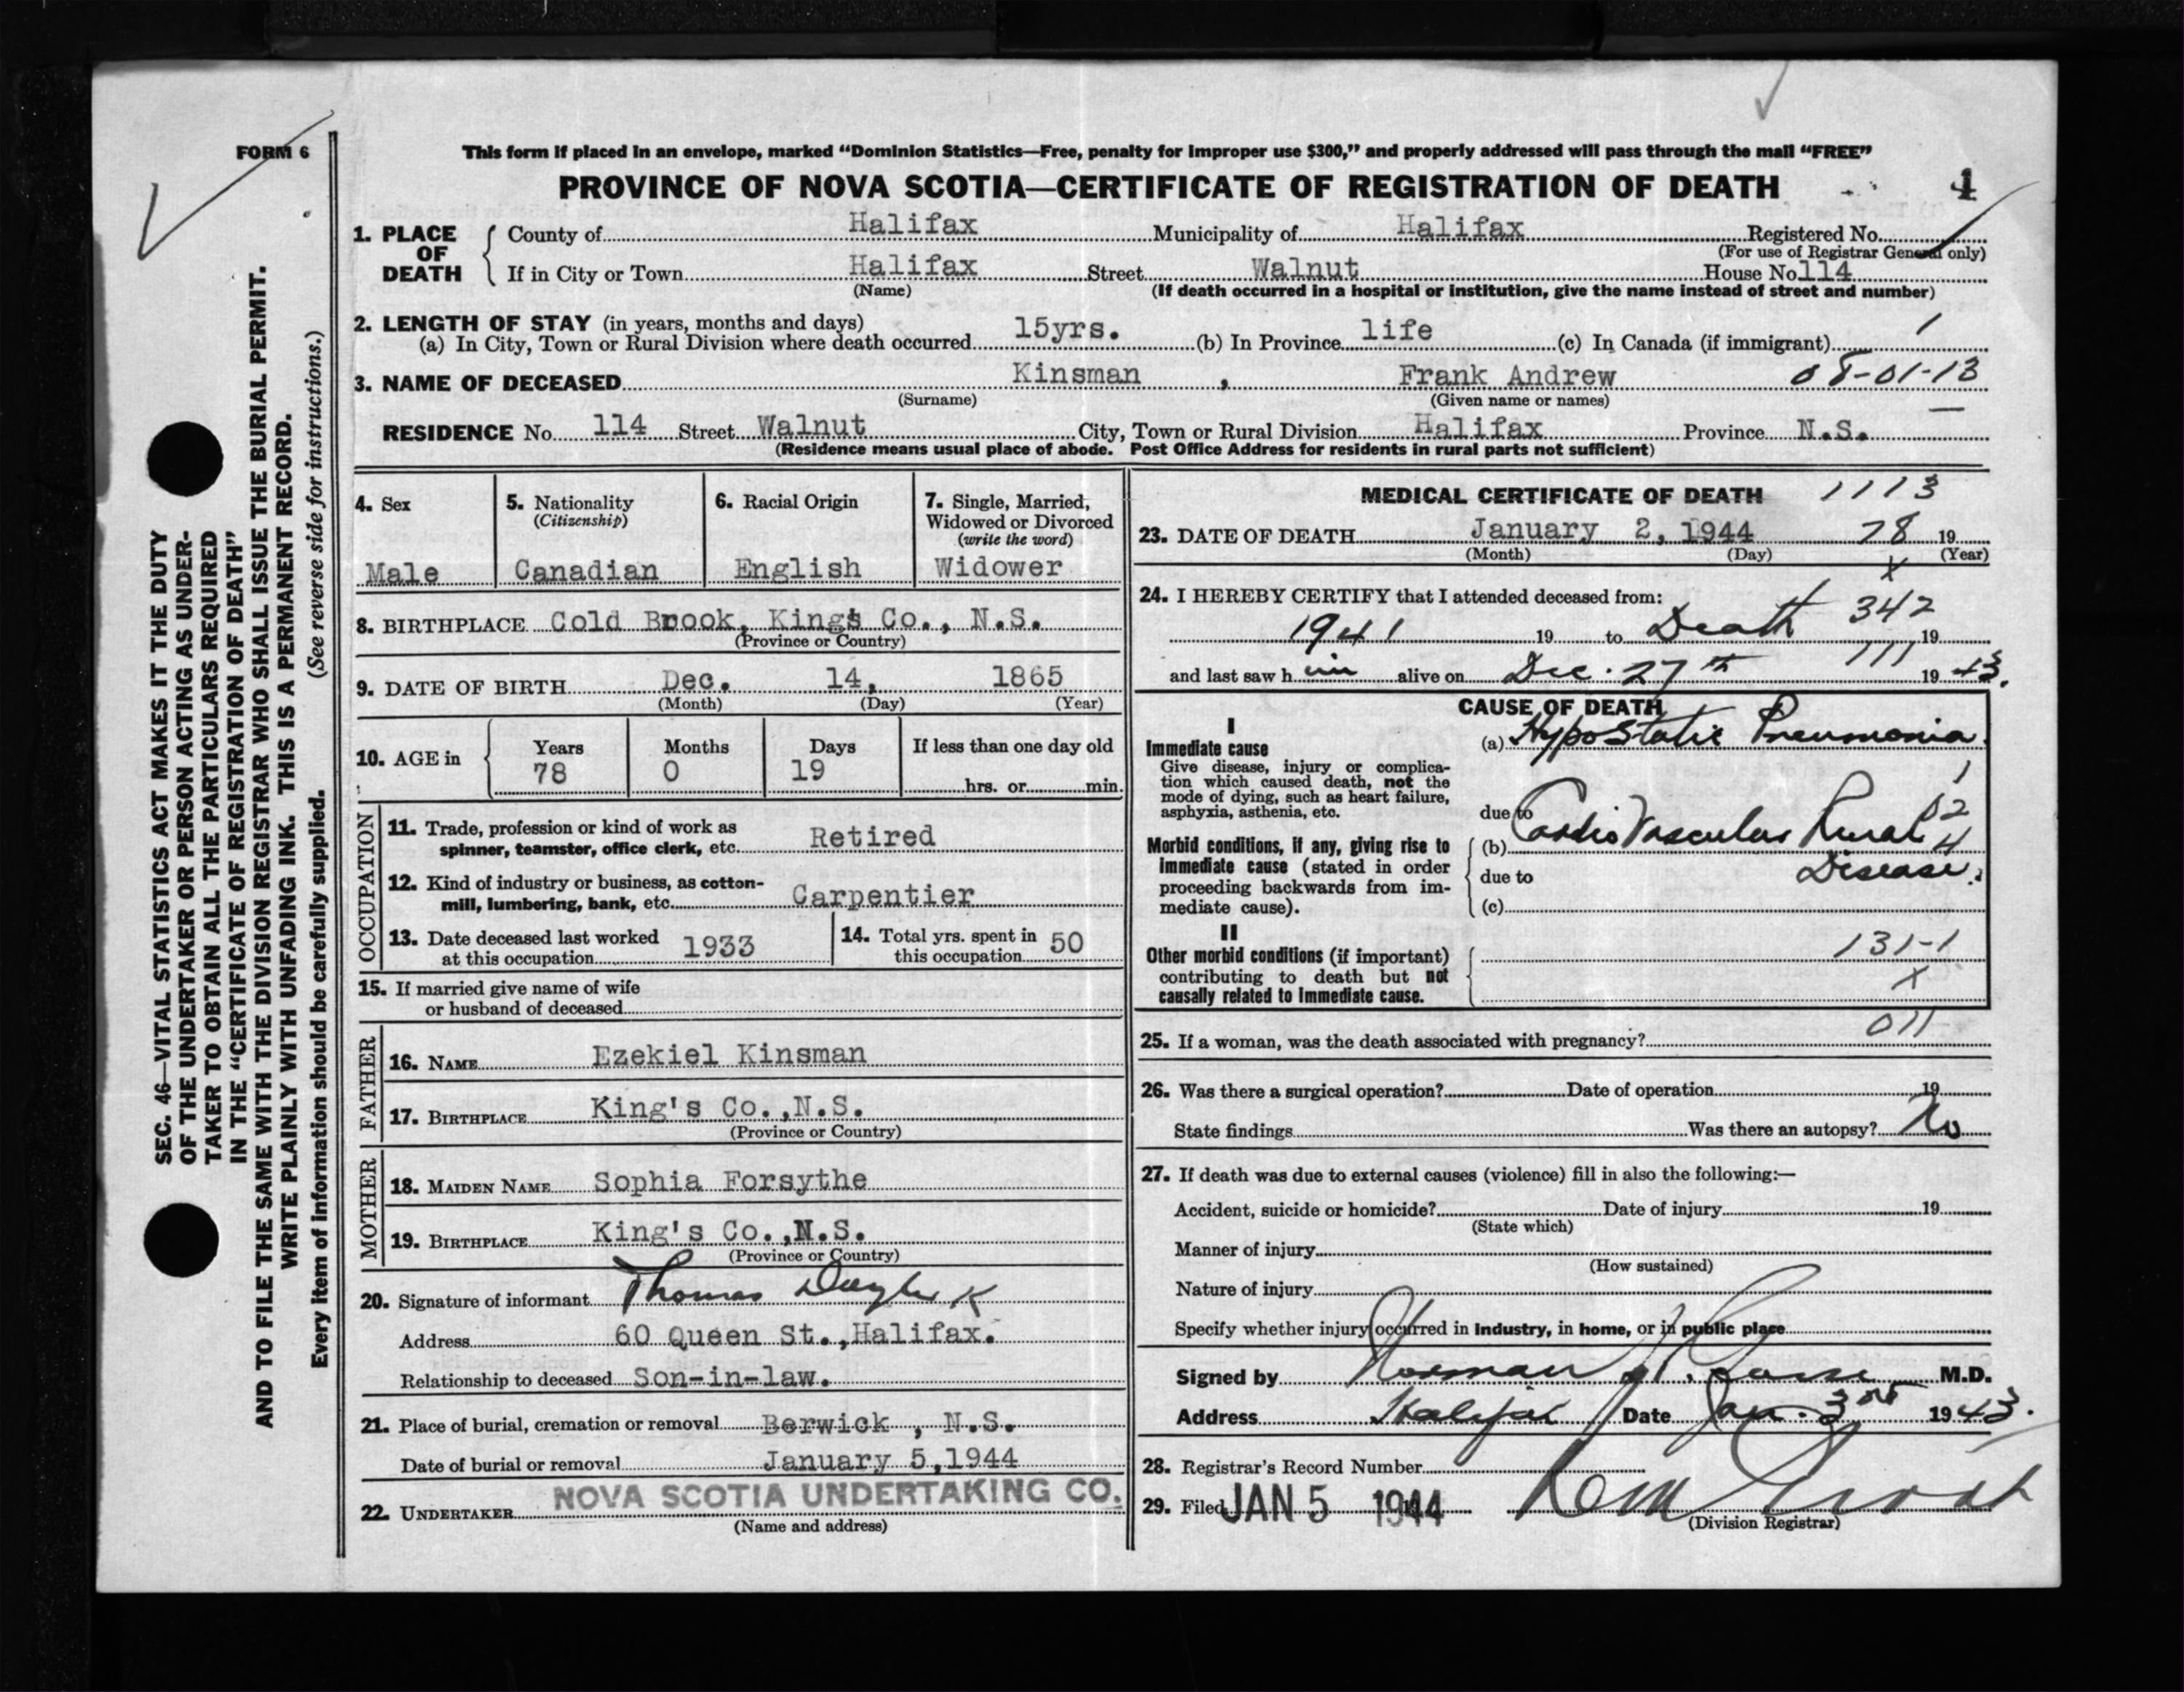 FORM 6
This form if placed in an envelope, marked “Dominion Statistics—Free, penalty for improper use $300,” and properly addressed will pass through the mail “FREE”
PROVINCE OF NOVA SCOTIA—CERTIFICATE OF REGISTRATION OF DEATH 1
SEC. 46—VITAL STATISTICS ACT MAKES IT THE DUTY
OF THE UNDERTAKER OR PERSON ACTING AS UNDER-
TAKER TO OBTAIN ALL THE PARTICULARS REQUIRED
IN THE “CERTIFICATE OF REGISTRATION OF DEATH”
AND TO FILE THE SAME WITH THE DIVISION REGISTRAR WHO SHALL ISSUE THE BURIAL PERMIT.
WRITE PLAINLY WITH UNFADING INK. THIS IS A PERMANENT RECORD.
Every item of information should be carefully supplied. (See reverse side for instructions.)
1. PLACE OF DEATH County of Halifax Municipality of Halifax Registered No.
(For use of Registrar General only)
If in City or Town Halifax Street Walnut House No. 114
(Name) (If death occurred in a hospital or institution, give the name instead of street and number)
2. LENGTH OF STAY (in years, months and days)
(a) In City, Town or Rural Division where death occurred 15yrs. (b) In Province life (c) In Canada (if immigrant) 1
3. NAME OF DECEASED Kinsman , Frank Andrew 08-01-13
(Surname) (Given name or names)
RESIDENCE No. 114 Street Walnut City, Town or Rural Division Halifax Province N.S.
(Residence means usual place of abode. Post Office Address for residents in rural parts not sufficient)
4. Sex
Male
5. Nationality
(Citizenship)
Canadian
6. Racial Origin
English
7. Single, Married,
Widowed or Divorced
(write the word)
Widower
8. BIRTHPLACE Cold Brook, King's Co., N.S.
(Province or Country)
9. DATE OF BIRTH Dec. 14, 1865
(Month) (Day) (Year)
10. AGE in Years Months Days If less than one day old
78 0 19 hrs. or min.
OCCUPATION
11. Trade, profession or kind of work as
spinner, teamster, office clerk, etc. Retired
12. Kind of industry or business, as cotton-
mill, lumbering, bank, etc. Carpentier
13. Date deceased last worked
at this occupation 1933
14. Total yrs. spent in
this occupation 50
15. If married give name of wife
or husband of deceased
FATHER
16. NAME Ezekiel Kinsman
17. BIRTHPLACE King's Co.,N.S.
(Province or Country)
MOTHER
18. MAIDEN NAME Sophia Forsythe
19. BIRTHPLACE King's Co.,N.S.
(Province or Country)
20. Signature of informant Thomas
Address 60 Queen St.,Halifax.
Relationship to deceased Son-in-law.
21. Place of burial, cremation or removal Berwick , N.S.
Date of burial or removal January 5,1944
22. UNDERTAKER NOVA SCOTIA UNDERTAKING CO.
(Name and address)
MEDICAL CERTIFICATE OF DEATH 1113
23. DATE OF DEATH January 2, 1944 78 19
(Month) (Day) (Year)
x
24. I HEREBY CERTIFY that I attended deceased from: 342
1941 19 to Death 19
and last saw h im alive on Dec. 27th 111 19 43.
CAUSE OF DEATH
I
Immediate cause
Give disease, injury or complica-
tion which caused death, not the
mode of dying, such as heart failure,
asphyxia, asthenia, etc.
(a) Hypostatic Pneumonia
1
due to
Morbid conditions, if any, giving rise to
immediate cause (stated in order
proceeding backwards from im-
mediate cause).
(b) Cardio Vascular Renal
4
due to Disease.
(c)
II
Other morbid conditions (if important)
contributing to death but not
causally related to immediate cause.
131-1
x
011
25. If a woman, was the death associated with pregnancy?
26. Was there a surgical operation? Date of operation 19
State findings Was there an autopsy? No
27. If death was due to external causes (violence) fill in also the following:—
Accident, suicide or homicide? Date of injury 19
(State which)
Manner of injury
(How sustained)
Nature of injury
Specify whether injury occurred in industry, in home, or in public place
Signed by Norman M.D.
Address Halifax Date Jan. 3rd 1943.
28. Registrar's Record Number
29. Filed JAN 5 1944
(Division Registrar)